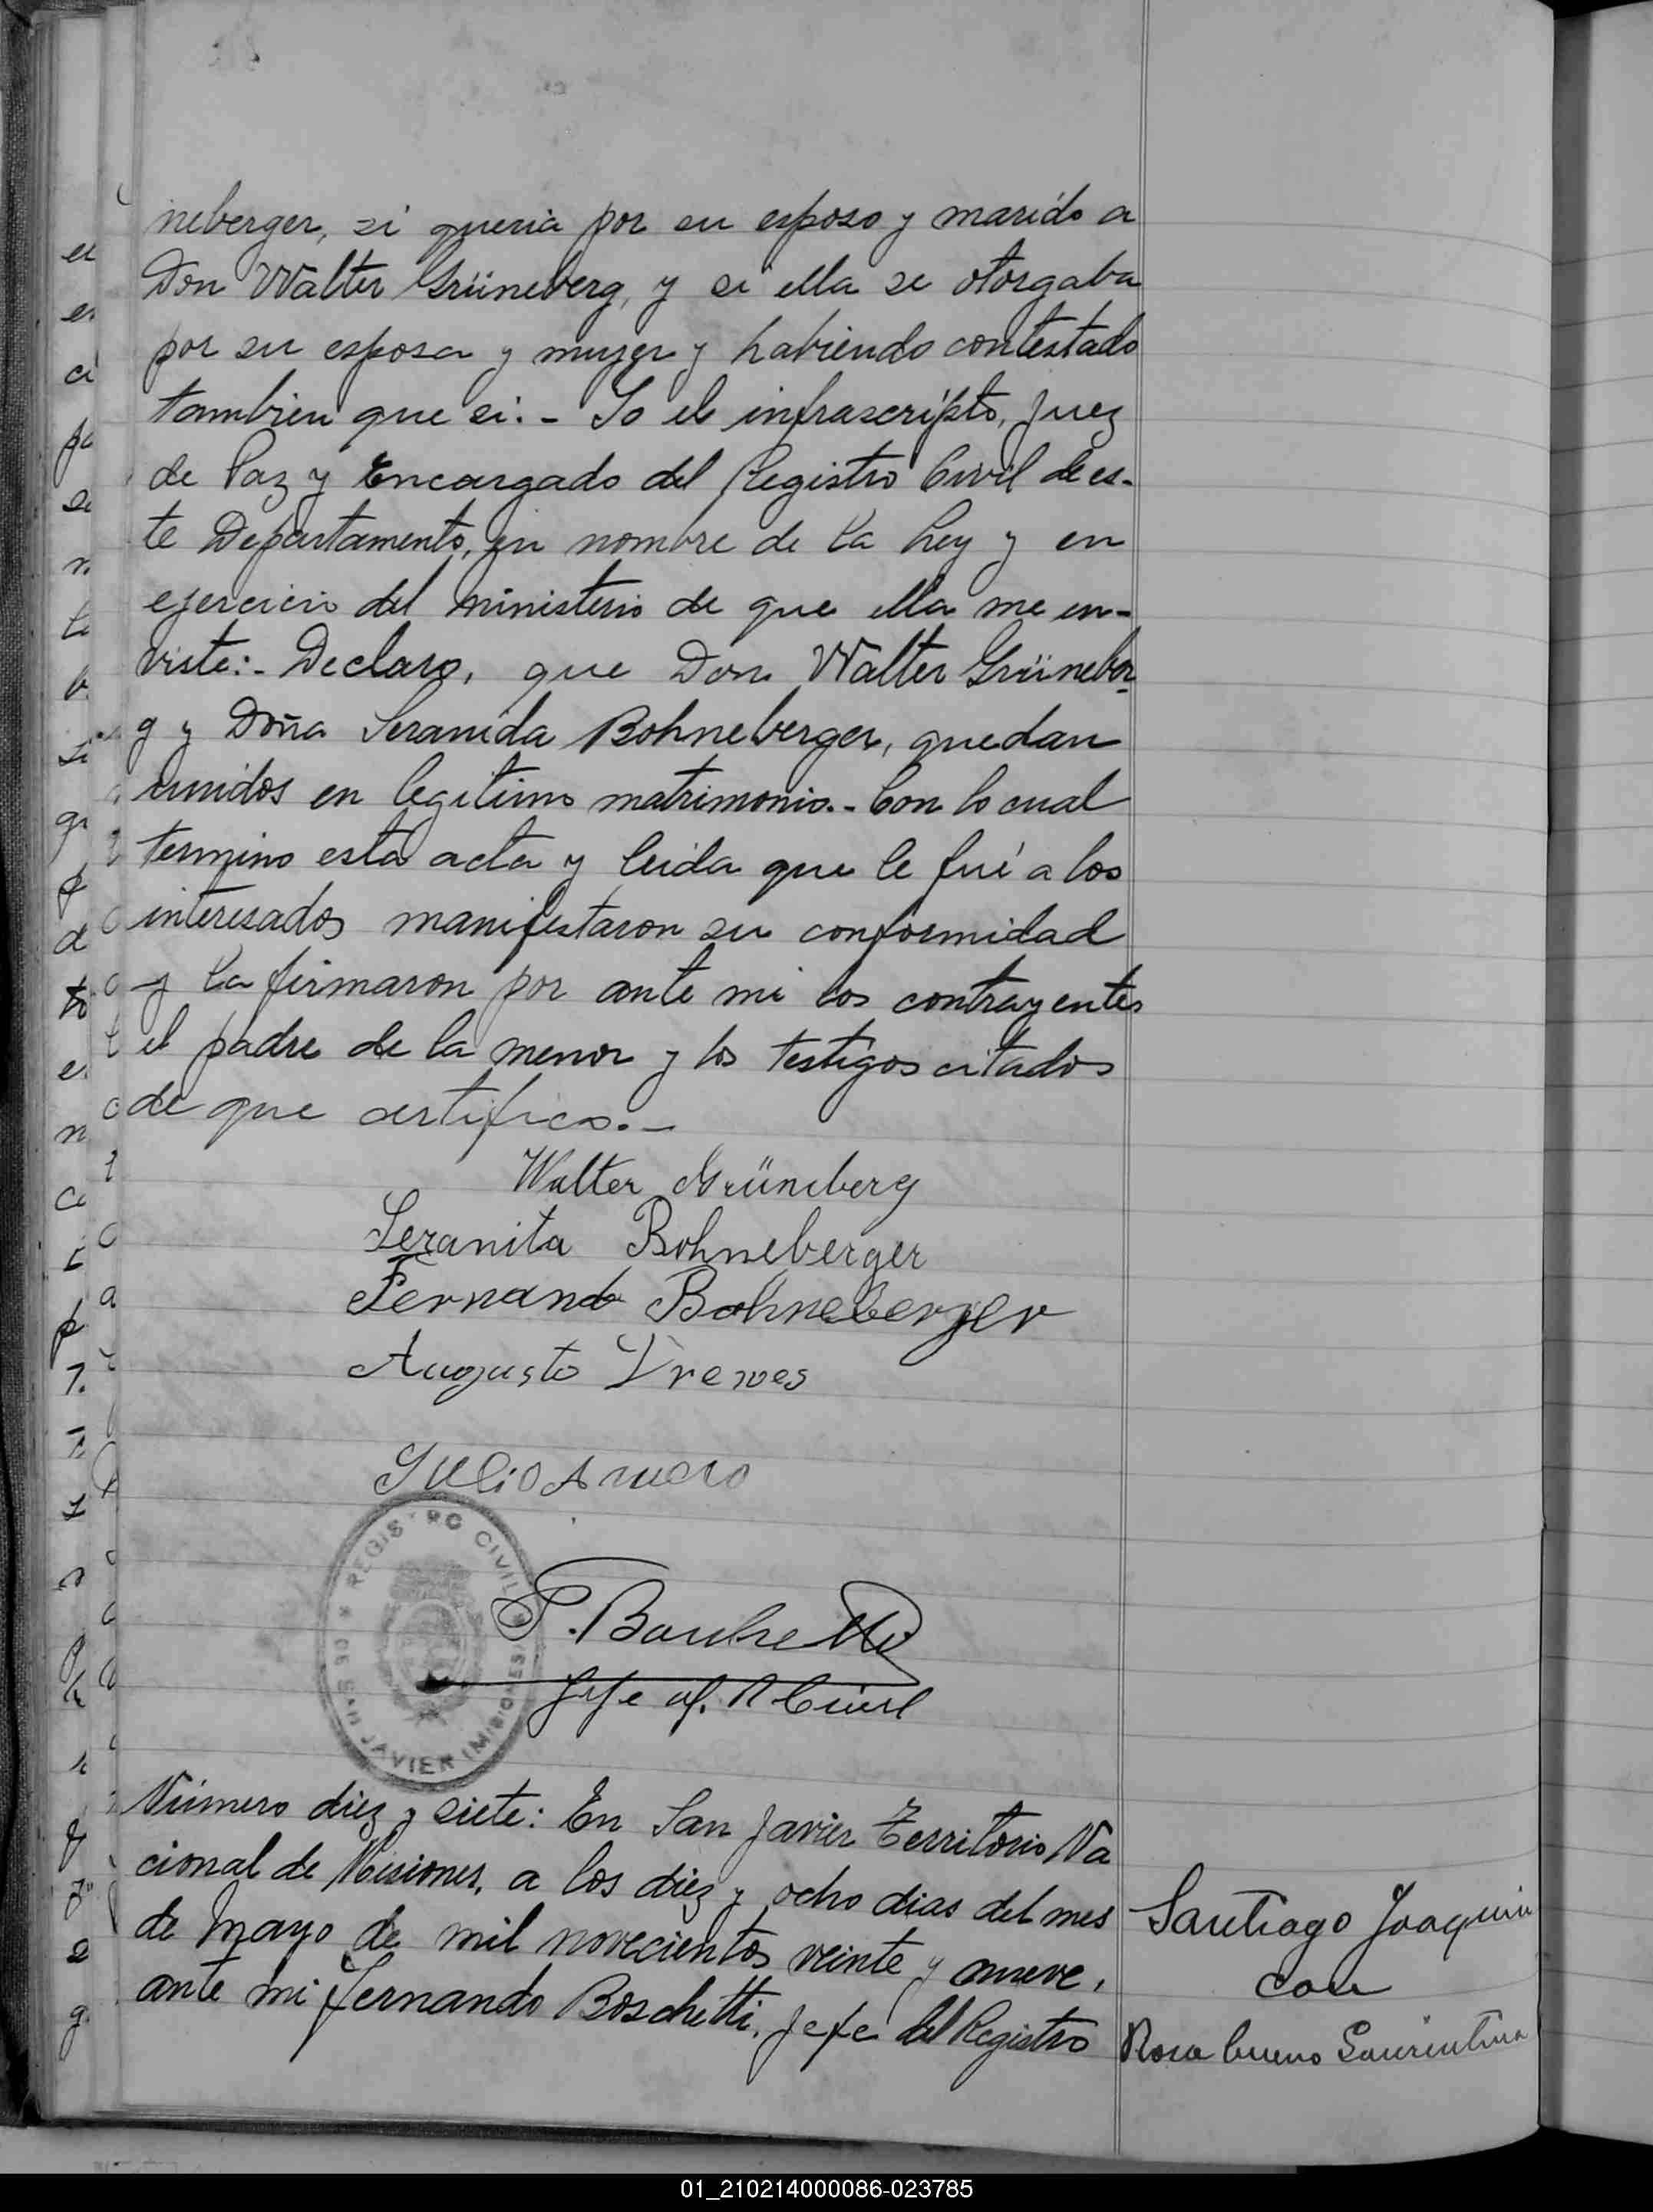 neberger, si queria por su esposo y marido a
Don Walter Grüneberg, y si ella se otorgaba
por su esposa y mujer y habiendo contestado
tambien que si:- Yo el infrascripto, Juez
de Paz y Encargado del Registro Civil de es-
te Departamento, en nombre de la Ley y en
ejercicio del ministerio de que ella me en-
viste:- Declaro, que Don Walter Grünebor-
g y Doña Seranida Bohneberger, quedan
unidos en legitimo matrimonio.- Con lo cual
termino esta acta y leida que le fué a los
interesados manifestaron su conformidad
y la firmaron por ante mi los contrayentes
el padre de la menor y los testigos citados
de que certifico.-
Walter Grüneberg
Seranita Bohneberger
Fernando Bohneberger
Augusto Drewes
Julio
REGISTRO CIVIL
DE SAN JAVIER (MISIONES)
Jefe of. R Civil
Número diez y siete: En San Javier Territorio Na
cional de Misiones, a los diez y ocho dias del mes
de Mayo de mil novecientos veinte y nueve,
ante mi Fernando Boschetti, Jefe del Registro
Santiago Joaquin
con
Rosa Bueno
01_210214000086-023785